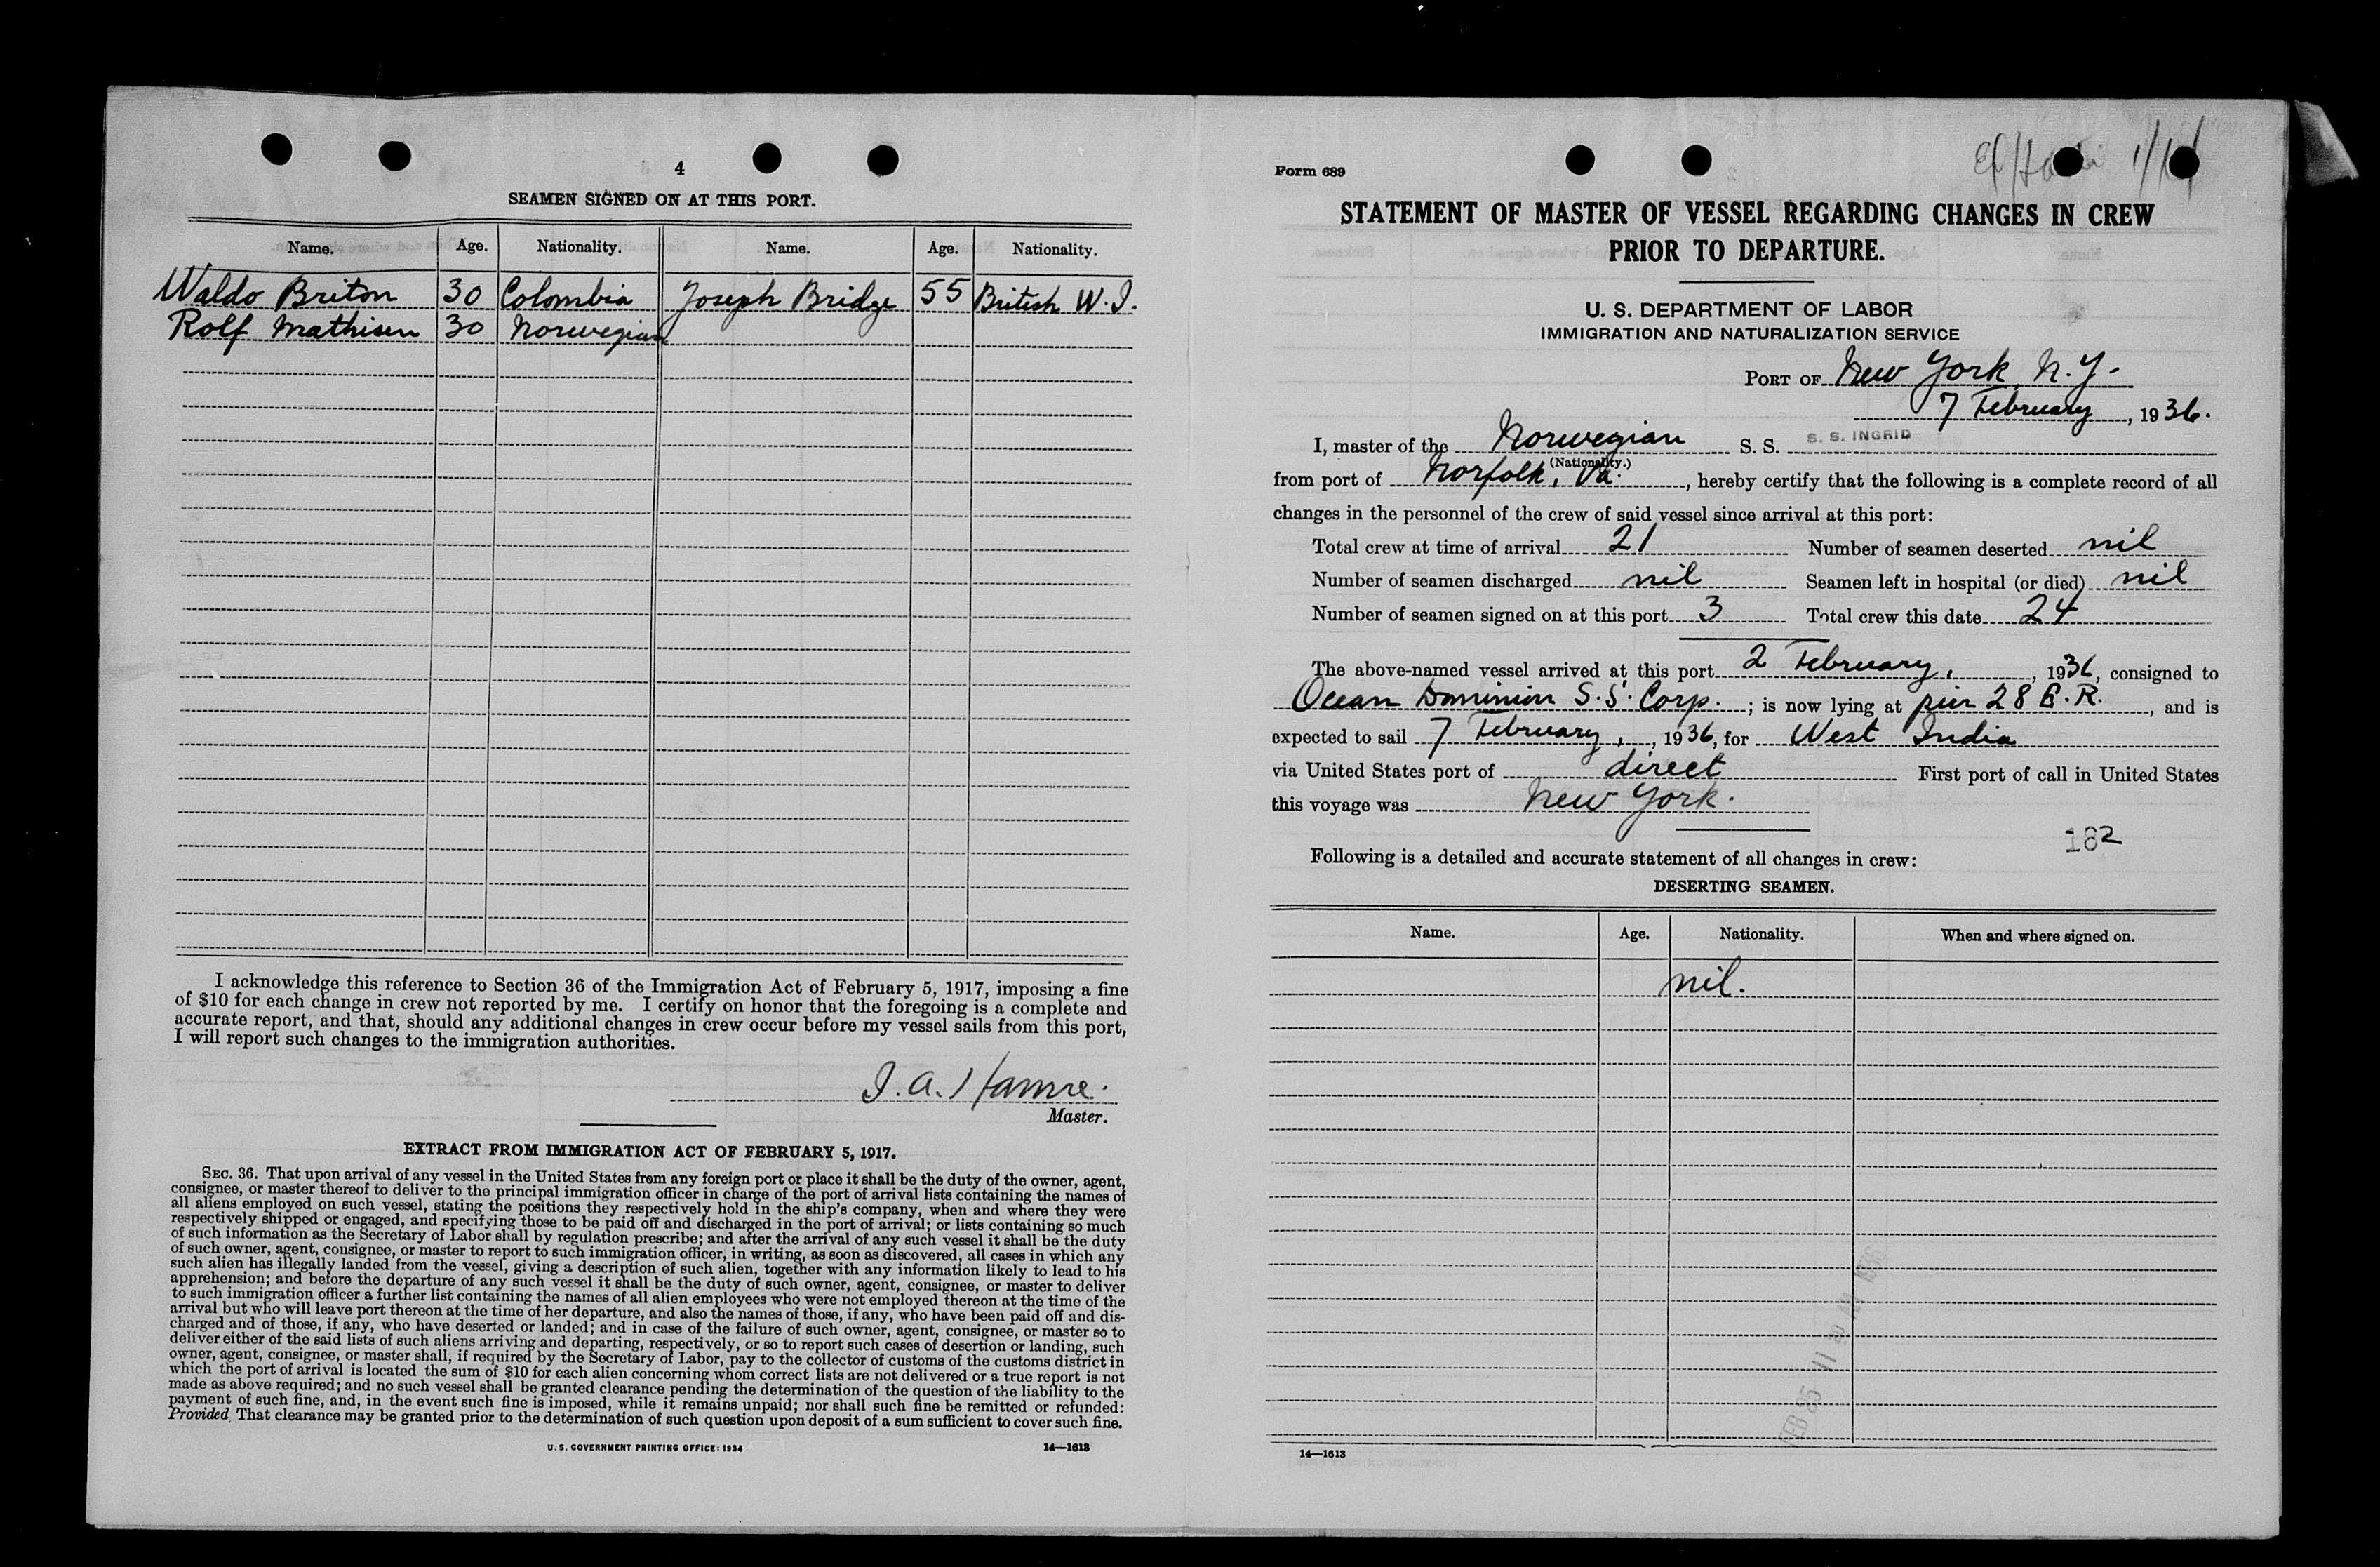 4
SEAMEN SIGNED ON AT THIS PORT.
Name. Age. Nationality. Name. Age. Nationality.
Waldo Briton 30 Colombia Joseph Bridge 55 British W. I.
Rolf Mathisen 30 Norwegian
I acknowledge this reference to Section 36 of the Immigration Act of February 5, 1917, imposing a fine
of $10 for each change in crew not reported by me. I certify on honor that the foregoing is a complete and
accurate report, and that, should any additional changes in crew occur before my vessel sails from this port,
I will report such changes to the immigration authorities.
I. A. Hamre.
Master.
EXTRACT FROM IMMIGRATION ACT OF FEBRUARY 5, 1917.
SEC. 36. That upon arrival of any vessel in the United States from any foreign port or place it shall be the duty of the owner, agent,
consignee, or master thereof to deliver to the principal immigration officer in charge of the port of arrival lists containing the names of
all aliens employed on such vessel, stating the positions they respectively hold in the ship's company, when and where they were
respectively shipped or engaged, and specifying those to be paid off and discharged in the port of arrival; or lists containing so much
of such information as the Secretary of Labor shall by regulation prescribe; and after the arrival of any such vessel it shall be the duty
of such owner, agent, consignee, or master to report to such immigration officer, in writing, as soon as discovered, all cases in which any
such alien has illegally landed from the vessel, giving a description of such alien, together with any information likely to lead to his
apprehension; and before the departure of any such vessel it shall be the duty of such owner, agent, consignee, or master to deliver
to such immigration officer a further list containing the names of all alien employees who were not employed thereon at the time of the
arrival but who will leave port thereon at the time of her departure, and also the names of those, if any, who have been paid off and dis-
charged and of those, if any, who have deserted or landed; and in case of the failure of such owner, agent, consignee, or master so to
deliver either of the said lists of such aliens arriving and departing, respectively, or so to report such cases of desertion or landing, such
owner, agent, consignee, or master shall, if required by the Secretary of Labor, pay to the collector of customs of the customs district in
which the port of arrival is located the sum of $10 for each alien concerning whom correct lists are not delivered or a true report is not
made as above required; and no such vessel shall be granted clearance pending the determination of the question of the liability to the
payment of such fine, and, in the event such fine is imposed, while it remains unpaid; nor shall such fine be remitted or refunded:
Provided, That clearance may be granted prior to the determination of such question upon deposit of a sum sufficient to cover such fine.
U. S. GOVERNMENT PRINTING OFFICE: 1934 14—1613
Form 689
STATEMENT OF MASTER OF VESSEL REGARDING CHANGES IN CREW
PRIOR TO DEPARTURE.
U. S. DEPARTMENT OF LABOR
IMMIGRATION AND NATURALIZATION SERVICE
PORT OF New York, N.Y.
7 February, 1936.
I, master of the Norwegian S. S. S. S. INGRID
(Nationality.)
from port of Norfolk, Va., hereby certify that the following is a complete record of all
changes in the personnel of the crew of said vessel since arrival at this port:
Total crew at time of arrival 21 Number of seamen deserted nil
Number of seamen discharged nil Seamen left in hospital (or died) nil
Number of seamen signed on at this port 3 Total crew this date 24
The above-named vessel arrived at this port 2 February, 1936, consigned to
Ocean Dominion S.S. Corp.; is now lying at pier 28 E.R., and is
expected to sail 7 February, 1936, for West India
via United States port of direct First port of call in United States
this voyage was New York.
182
Following is a detailed and accurate statement of all changes in crew:
DESERTING SEAMEN.
Name. Age. Nationality. When and where signed on.
nil.
FEB 25 11
14—1613